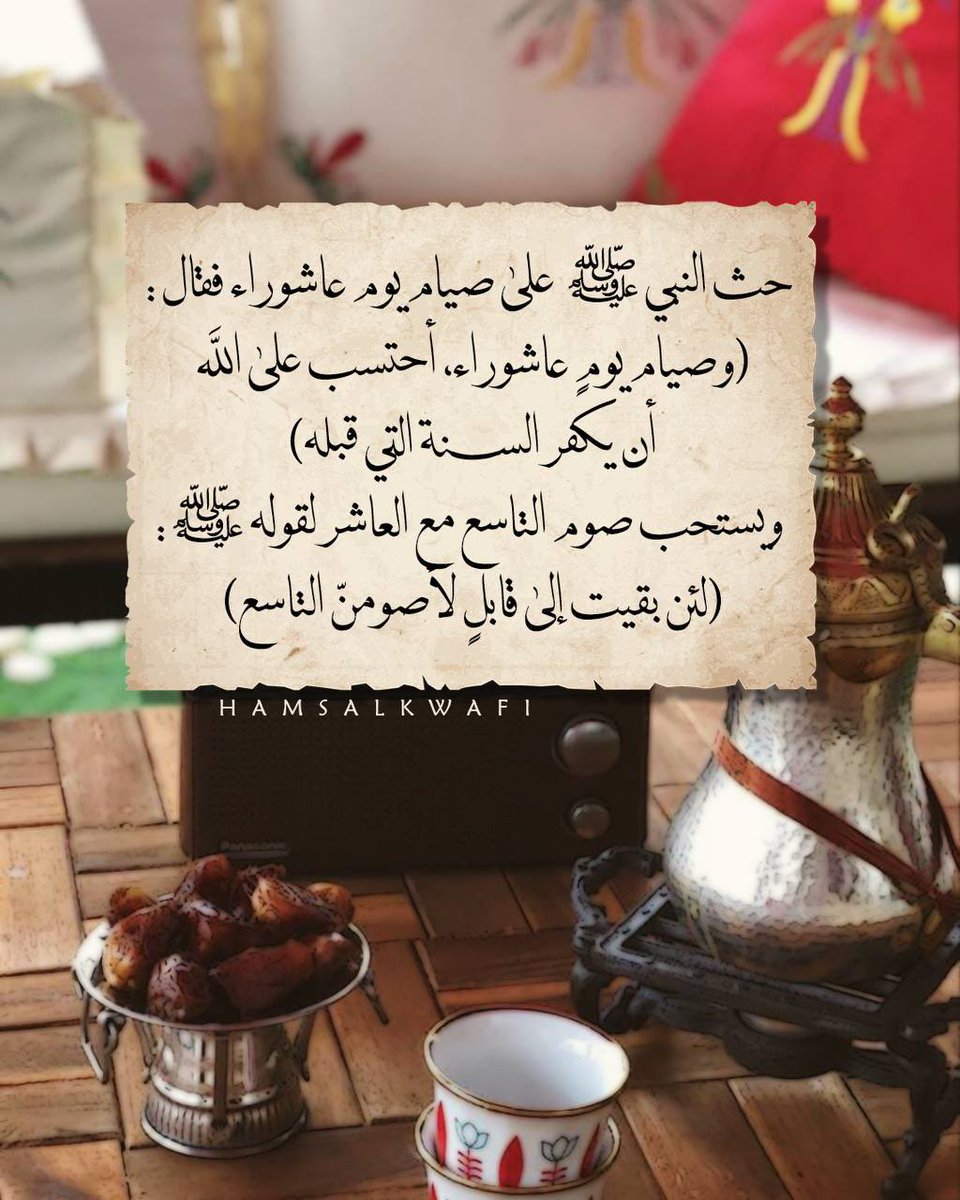 حث النبي ﷺ علىٰ صيام يوم عاشوراء فقال :
(وصيام يومٍ عاشوراء، أحتسب علىٰ اللَّه
أن يكفر السنة التي قبله)
ويستحب صوم التاسع مع العاشر لقوله ﷺ :
(لئن بقيت إلىٰ قابلٍ لأصومنّ التاسع)
HAMSALKWAFI
Panasonic